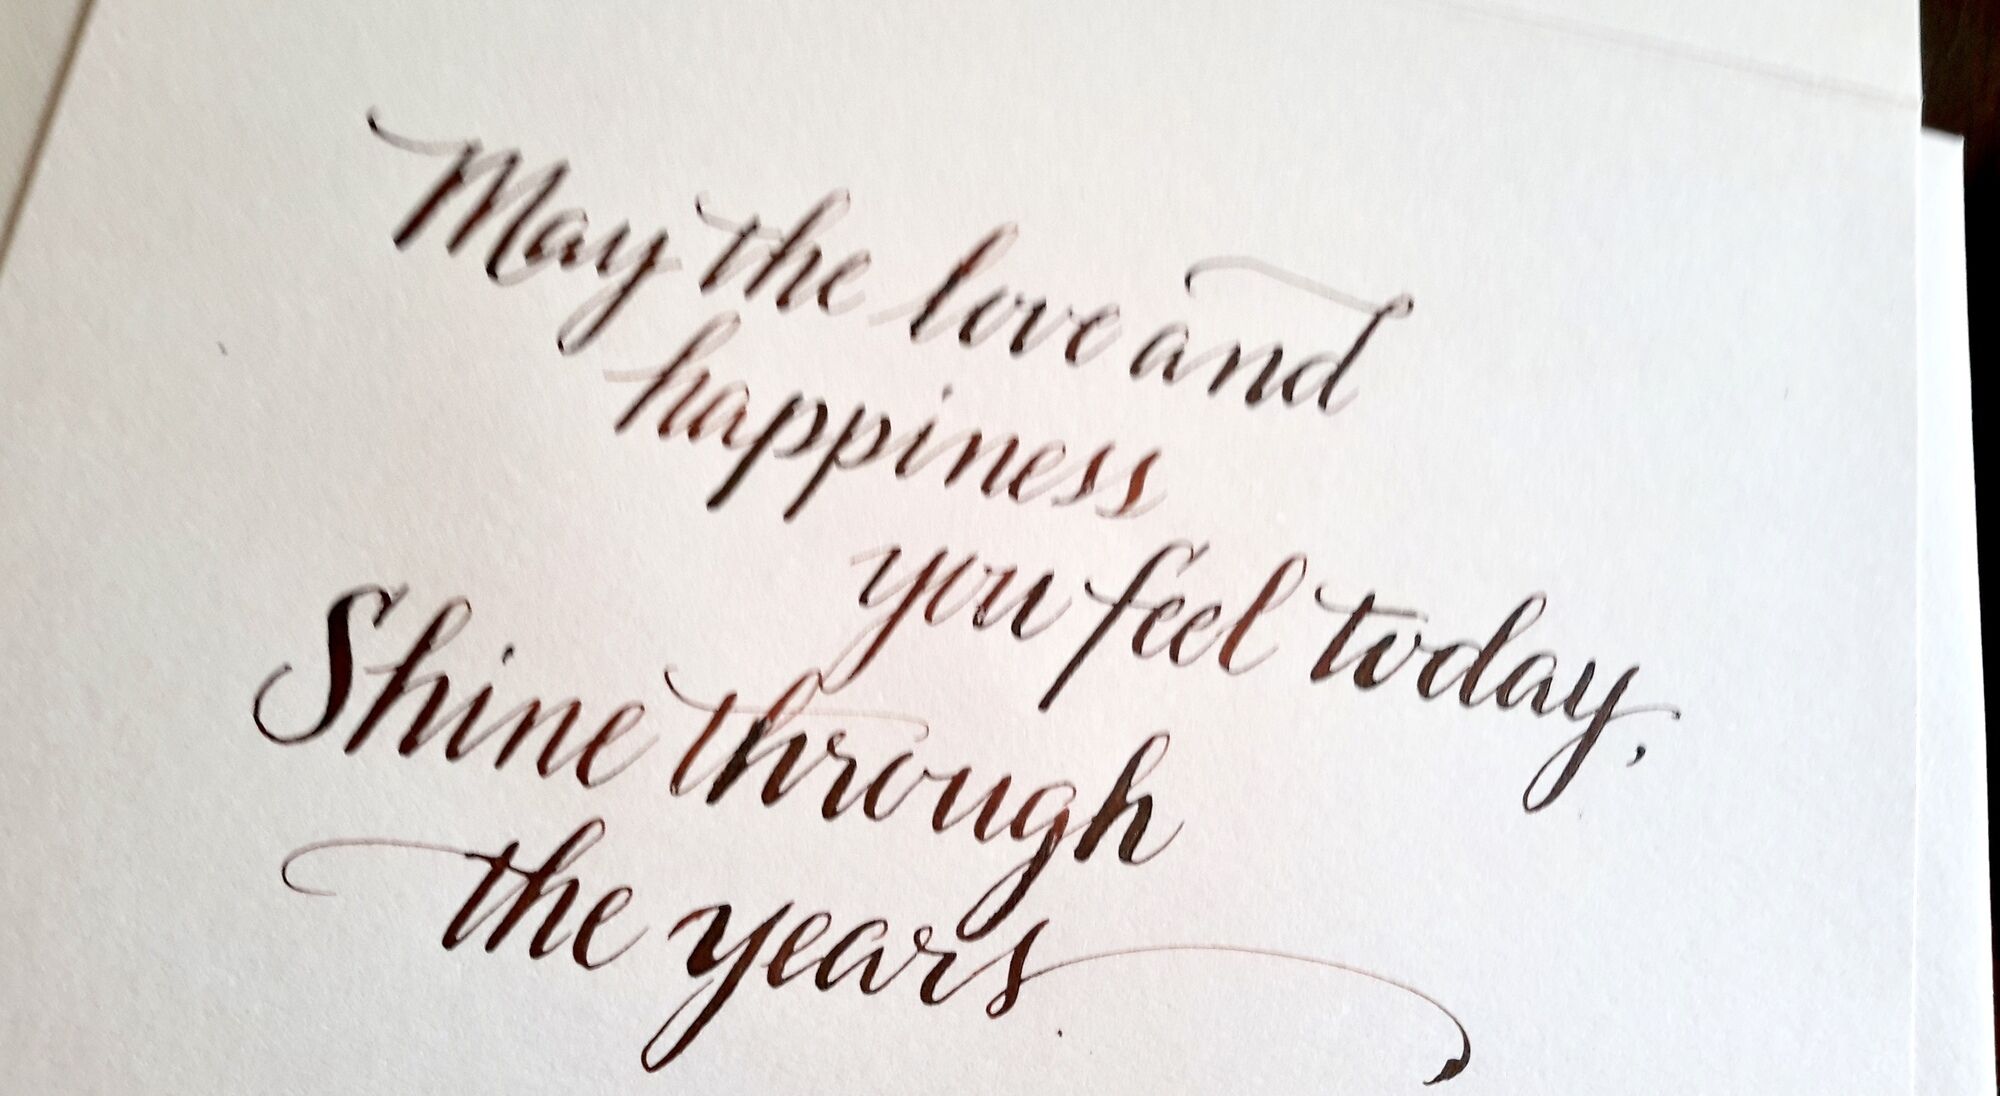 May the love and
happiness
you feel today,
Shine through
the years.